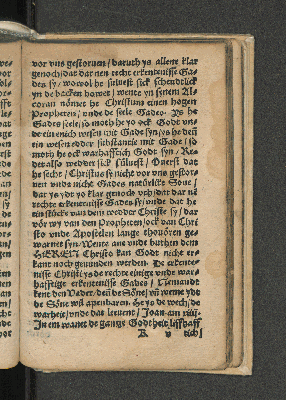 vor vns gestoruen / daruth ys allene klar
genoch / dat dar nen rechte erkendtnisse Ga-
des sy / wowol he süluest sick schendtlick
yn de hacken hower / wente yn synem Al-
coran nömet he Christum einen hogen
Propheten / vnde de seele Gades. Ys he
Gades seele / so moth he yo ock Godt vn-
de ein enich wesen mit Gade syn / ys he denn
ein wesen edder substantie mit Gade / so
moth he ock warhafftich Godt syn / Re-
det also wedder sick süluest / Querst dat
he secht / Christus sy nicht vor vns gestor-
uen vnde nicht Gades natürlike Sone /
dar ys ydt yo klar genoch / dat dar nen
rechte erkentenisse Gades sy / vnde dat he
ein stücke van dem wedder Christe sy / dar
vör wy van den Propheten / ock van Chri
sto vnde Apostelen lange thouören ge-
warnet syn / Wente ane vnde buthen dem
HEREN Christo kan Godt nicht er-
kant noch gefunden werden. De erkente-
nisse Christi ys de rechte einige vnde war-
hafftige erkentenisse Gades / Nemandt
kent den Vader / denn de Söne / vñ weme ydt
de Söne wil apenbaren. He ys de wech / de
warheit / vnde dat leuent / Joan. am xiiij.
In em wanet de gantze Godtheit lyffhaff
A v tich /